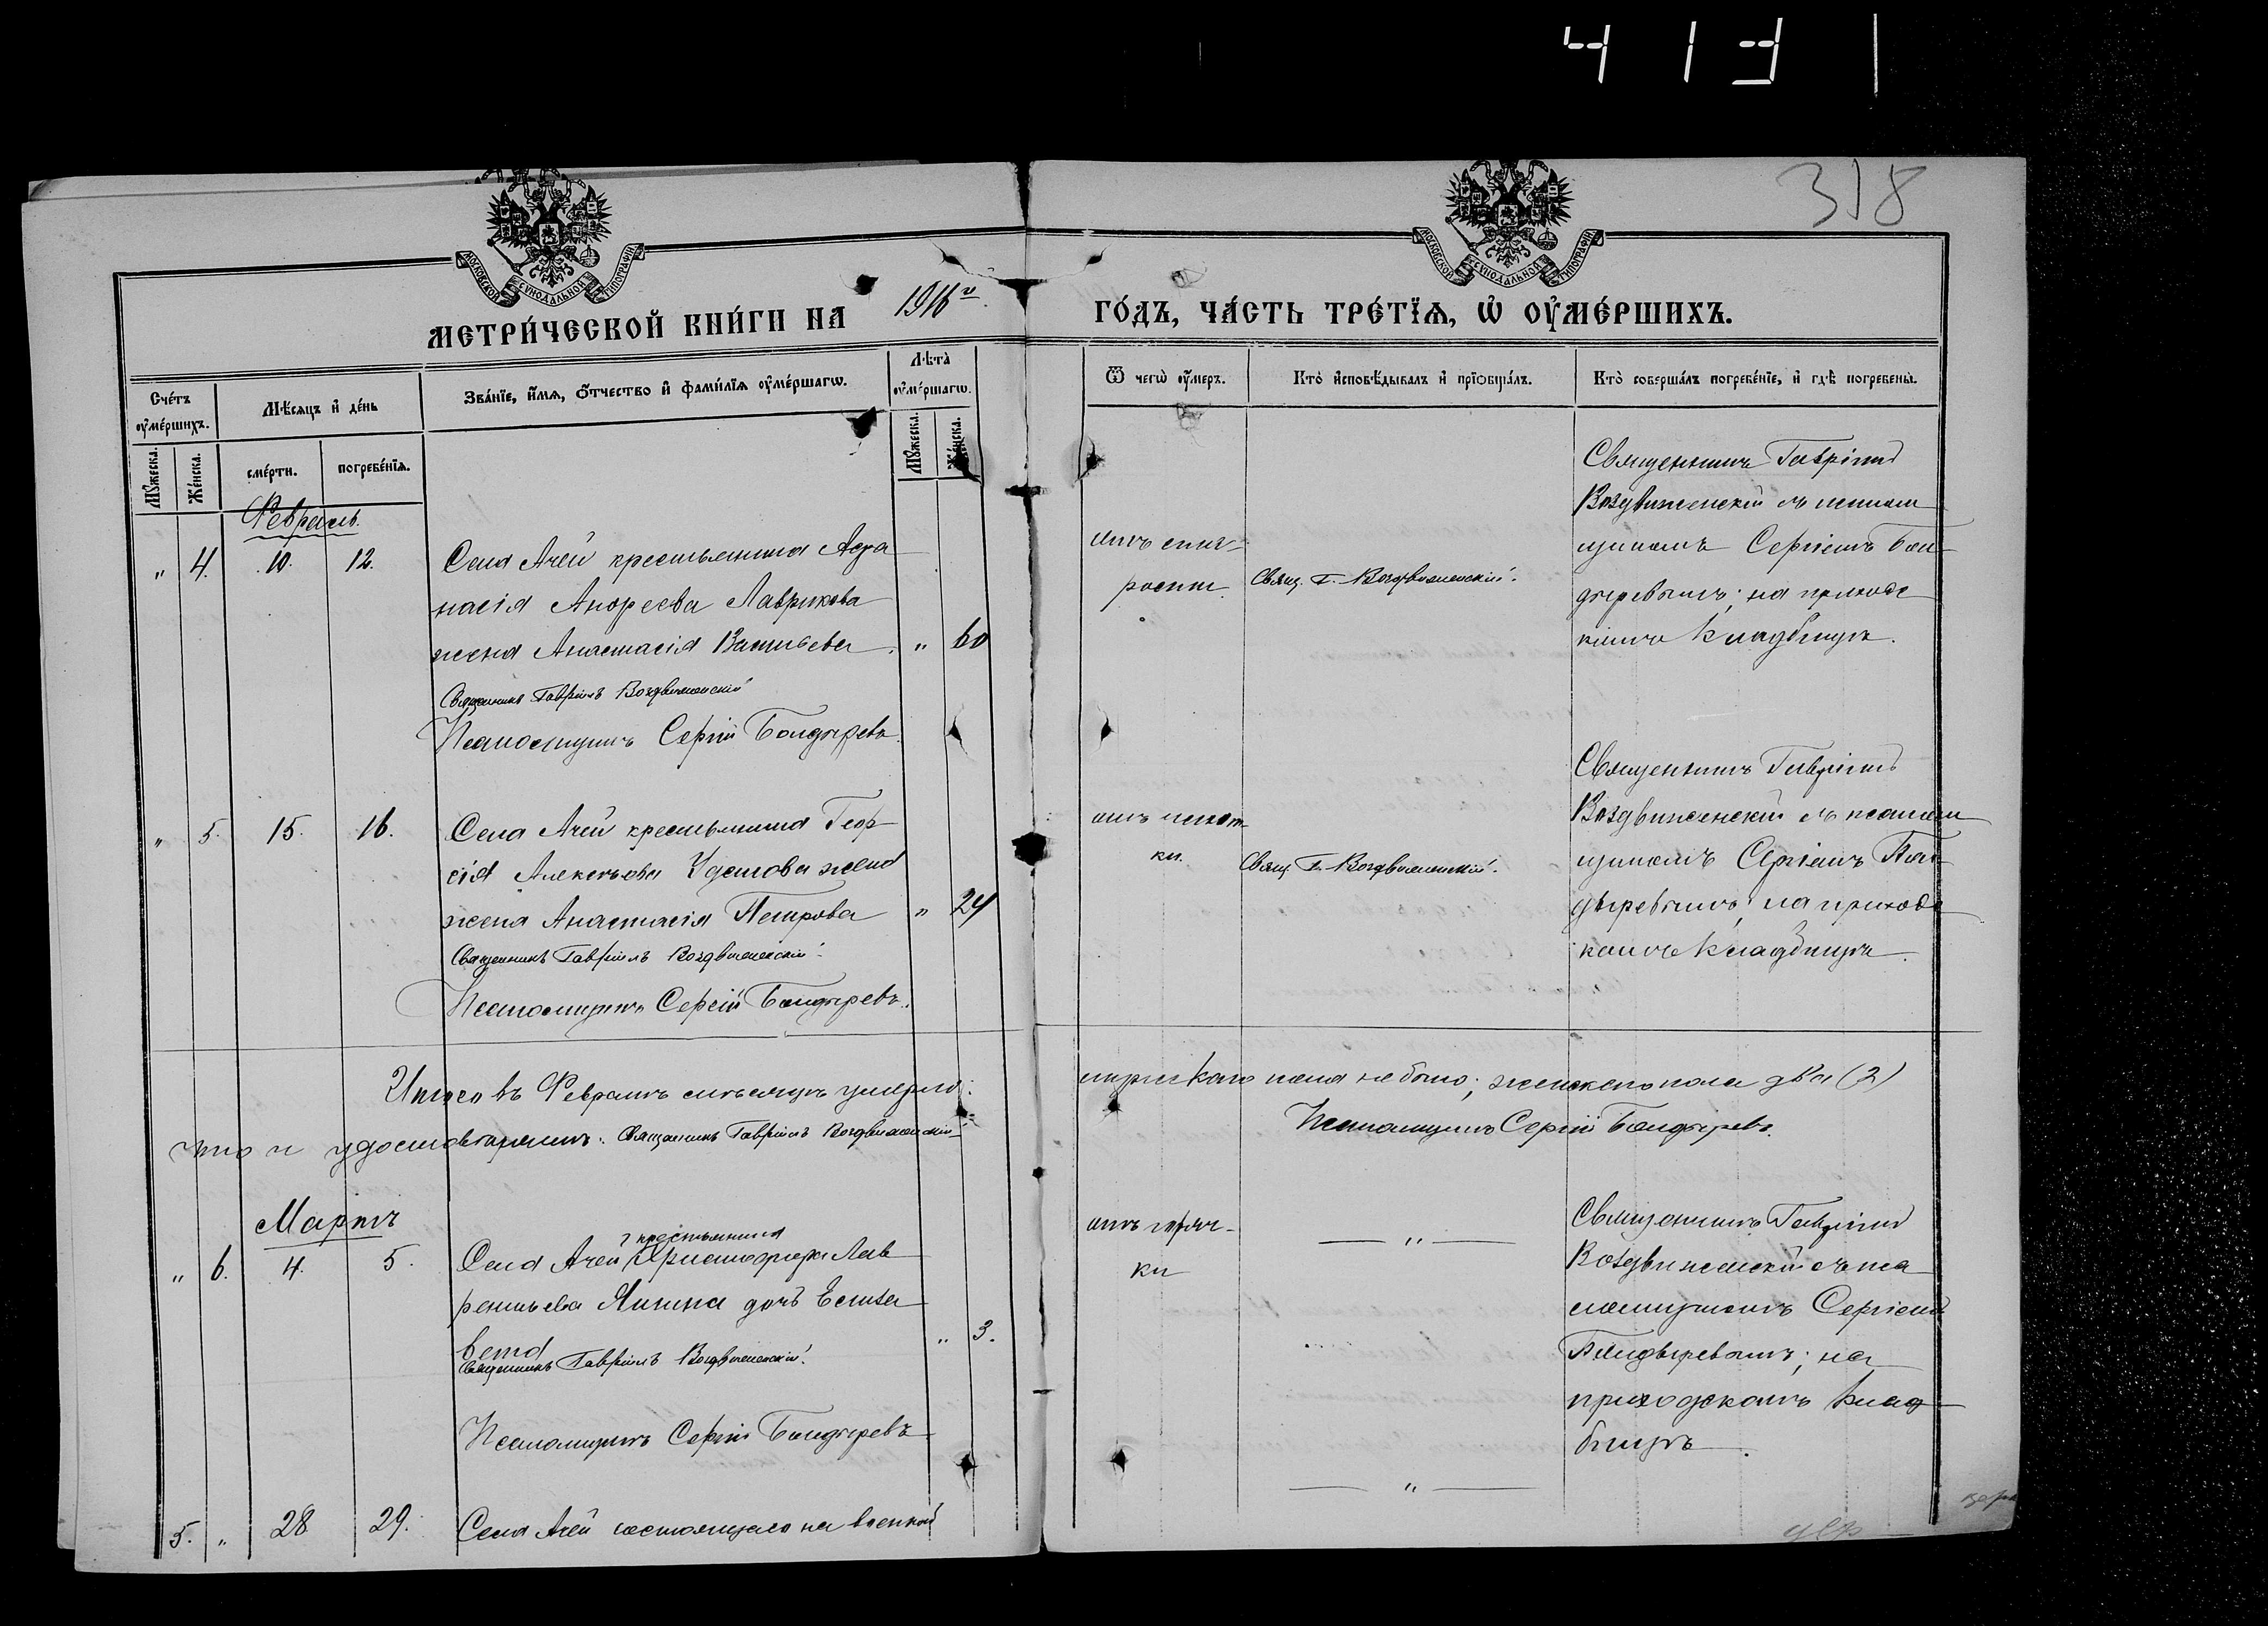 413
318
МОСКОВСКОЙ СѴНОДАЛЬНОЙ ТИПОГРАФІИ
МОСКОВСКОЙ СѴНОДАЛЬНОЙ ТИПОГРАФІИ
МЕТРИ́ЧЕСКОЙ КНИ́ГИ НА 1916 г. ГО́ДЪ, ЧА́СТЬ ТРЕ́ТЇѦ, Ѽ ОУ҆МЕ́РШИХЪ.
Сче́тъ оу҆ме́ршихъ.
Мѣ́сяцъ и҆ де́нь
Зва́нїе, и҆́мѧ, ѻ҆́тчество и҆ фамилїѧ оу҆ме́ршагѡ.
Лѣ́та оу҆ме́ршагѡ.
Ѿ чегѡ̀ оу҆́меръ.
Кто̀ и҆сповѣ́дывалъ и҆ прїѡбща́лъ.
Кто̀ соверша́лъ погребе́нїе, и҆ гдѣ̀ погребены̀.
Мꙋ́жеска.
Же́нска.
сме́рти.
погребе́нїѧ.
Мꙋ́жеска.
Же́нска.
Февраль.
" 4. 10. 12.
Села Ачей крестьянина Афа
насія Андреева Лаврикова
жена Анастасія Васильева. " 60
Священникъ Гавріилъ Воздвиженскій
Псаломщикъ Сергій Болдыревъ.
отъ ста-
рости.
Свящ. Г. Воздвиженскій.
Священникъ Гавріилъ
Воздвиженскій съ псалом
щикомъ Сергіемъ Бол
дыревымъ; на приходс
комъ кладбищѣ.
" 5. 15. 16.
Села Ачей крестьянина Геор
гія Алексѣева жена
жена Анастасія Петрова " 24
Священникъ Гавріилъ Воздвиженскій.
Псаломщикъ Сергій Болдыревъ.
отъ чахот
ки.
Свящ. Г. Воздвиженскій.
Священникъ Гавріилъ
Воздвиженскій съ псалом
щикомъ Сергіемъ Бол
дыревымъ; на приходс
комъ кладбищѣ.
Итого въ Февралѣ мѣсяцѣ умерло: мужскаго пола не было; женскаго пола два (2)
что и удостовѣряемъ: Священникъ Гавріилъ Воздвиженскій
Псаломщикъ Сергій Болдыревъ.
Мартъ
" 6. 4. 5.
крестьянина
Села Ачей Христофора Лав
рентьева дочь Елиза
вета " 3.
Священникъ Гавріилъ Воздвиженскій.
Псаломщикъ Сергій Болдыревъ
отъ горяч-
ки
— " —
Священникъ Гавріилъ
Воздвиженскій съ пса
ломщикомъ Сергіемъ
Болдыревымъ; на
приходскомъ клад
бищѣ.
5. " 28 29.
Села Ачей состоящаго на военной
— " —